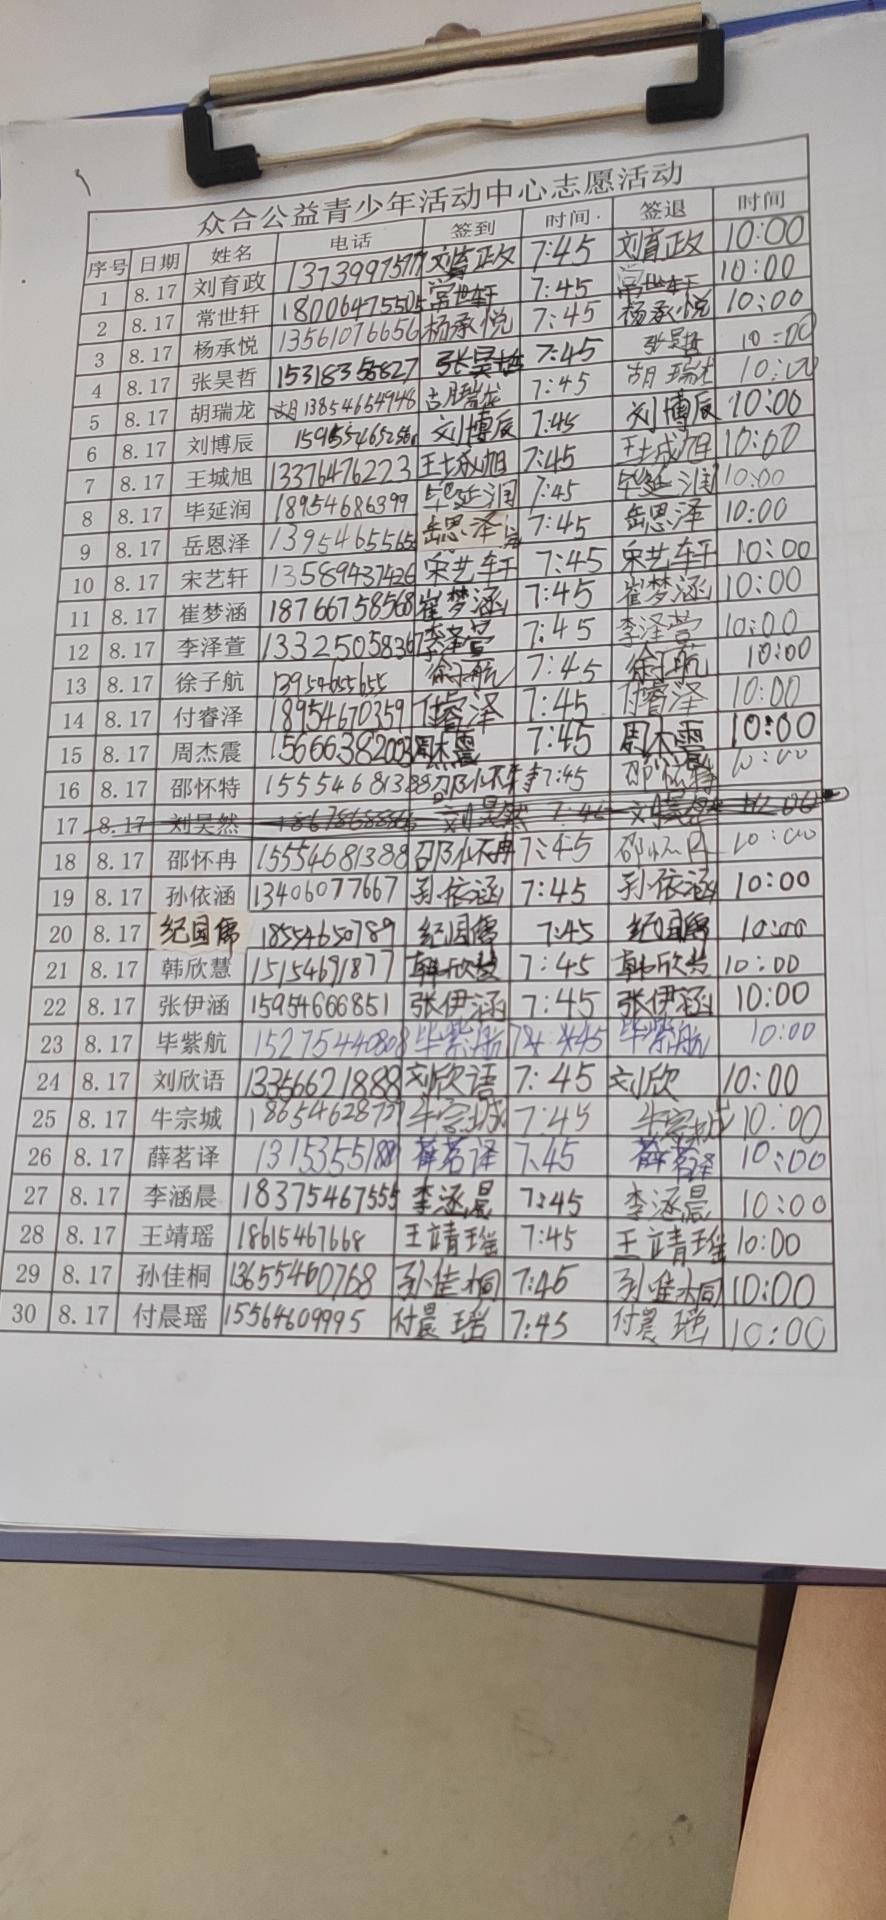 众合公益青少年活动中心志愿活动
序号 日期 姓名 电话 签到 时间 签退 时间
1 8.17 刘育政 13739997577 刘育政 7:45 刘育政 10:00
2 8.17 常世轩 18006475505 常世轩 7:45 常世轩 10:00
3 8.17 杨承悦 13561076656 杨承悦 7:45 杨承悦 10:00
4 8.17 张昊哲 15318355827 张昊哲 7:45 张昊哲 10:00
5 8.17 胡瑞龙 13854654948 胡瑞龙 7:45 胡瑞龙 10:00
6 8.17 刘博辰 刘博辰 7:45 刘博辰 10:00
7 8.17 王城旭 13376476223 王城旭 7:45 王城旭 10:00
8 8.17 毕延润 18954686399 毕延润 7:45 毕延润 10:00
9 8.17 岳恩泽 岳恩泽 7:45 岳恩泽 10:00
10 8.17 宋艺轩 13589437426 宋艺轩 7:45 宋艺轩 10:00
11 8.17 崔梦涵 18766758568 崔梦涵 7:45 崔梦涵 10:00
12 8.17 李泽萱 13325058367 李泽萱 7:45 李泽萱 10:00
13 8.17 徐子航 徐子航 7:45 徐子航 10:00
14 8.17 付睿泽 18954670359 付睿泽 7:45 付睿泽 10:00
15 8.17 周杰震 15666382003 周杰震 7:45 周杰震 10:00
16 8.17 邵怀特 15554681388 邵怀特 7:45 邵怀特 10:00
17 8.17 刘昊然 7:45
18 8.17 邵怀冉 15554681388 邵怀冉 7:45 邵怀冉 10:00
19 8.17 孙依涵 13406077667 孙依涵 7:45 孙依涵 10:00
20 8.17 纪国儒 18554650789 纪国儒 7:45 纪国儒 10:00
21 8.17 韩欣慧 15154691877 韩欣慧 7:45 韩欣慧 10:00
22 8.17 张伊涵 15954666851 张伊涵 7:45 张伊涵 10:00
23 8.17 毕紫航 15275440808 毕紫航 7:45 毕紫航 10:00
24 8.17 刘欣语 13356621888 刘欣语 7:45 刘欣 10:00
25 8.17 牛宗城 牛宗城 7:45 牛宗城 10:00
26 8.17 薛茗译 薛茗译 7:45 薛茗译 10:00
27 8.17 李涵晨 18375467555 李涵晨 7:45 李涵晨 10:00
28 8.17 王靖瑶 18615467668 王靖瑶 7:45 王靖瑶 10:00
29 8.17 孙佳桐 13655460768 孙佳桐 7:45 孙佳桐 10:00
30 8.17 付晨瑶 15564609995 付晨瑶 7:45 付晨瑶 10:00